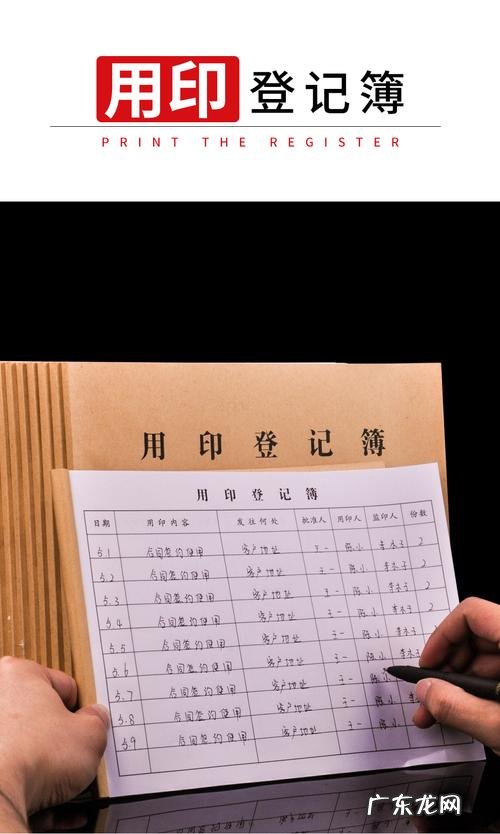 用印登记簿
PRINT THE REGISTER
用印登记簿
用印登记簿
日期 用印内容 发往何处 批准人 用印人 监印人 份数
5.1 合同签约使用 客户地址 王一 陈小 李木子 2
5.2 合同签约使用 客户地址 王一 陈小 李木子 2
5.3 合同签约使用 客户地址 王一 陈小 李木子 2
5.4 合同签约使用 客户地址 王一 陈小 李木子 2
5.5 合同签约使用 客户地址 王一 陈小 李木子
5.6 合同签约使用 客户地址 王一 陈小 李木子
5.7 合同签约使用 客户地址 王一 陈小
5.8 合同签约使用 客户地址 王一 陈小
5.9 合同签约使用 客户地址 王一 陈小
广东龙网